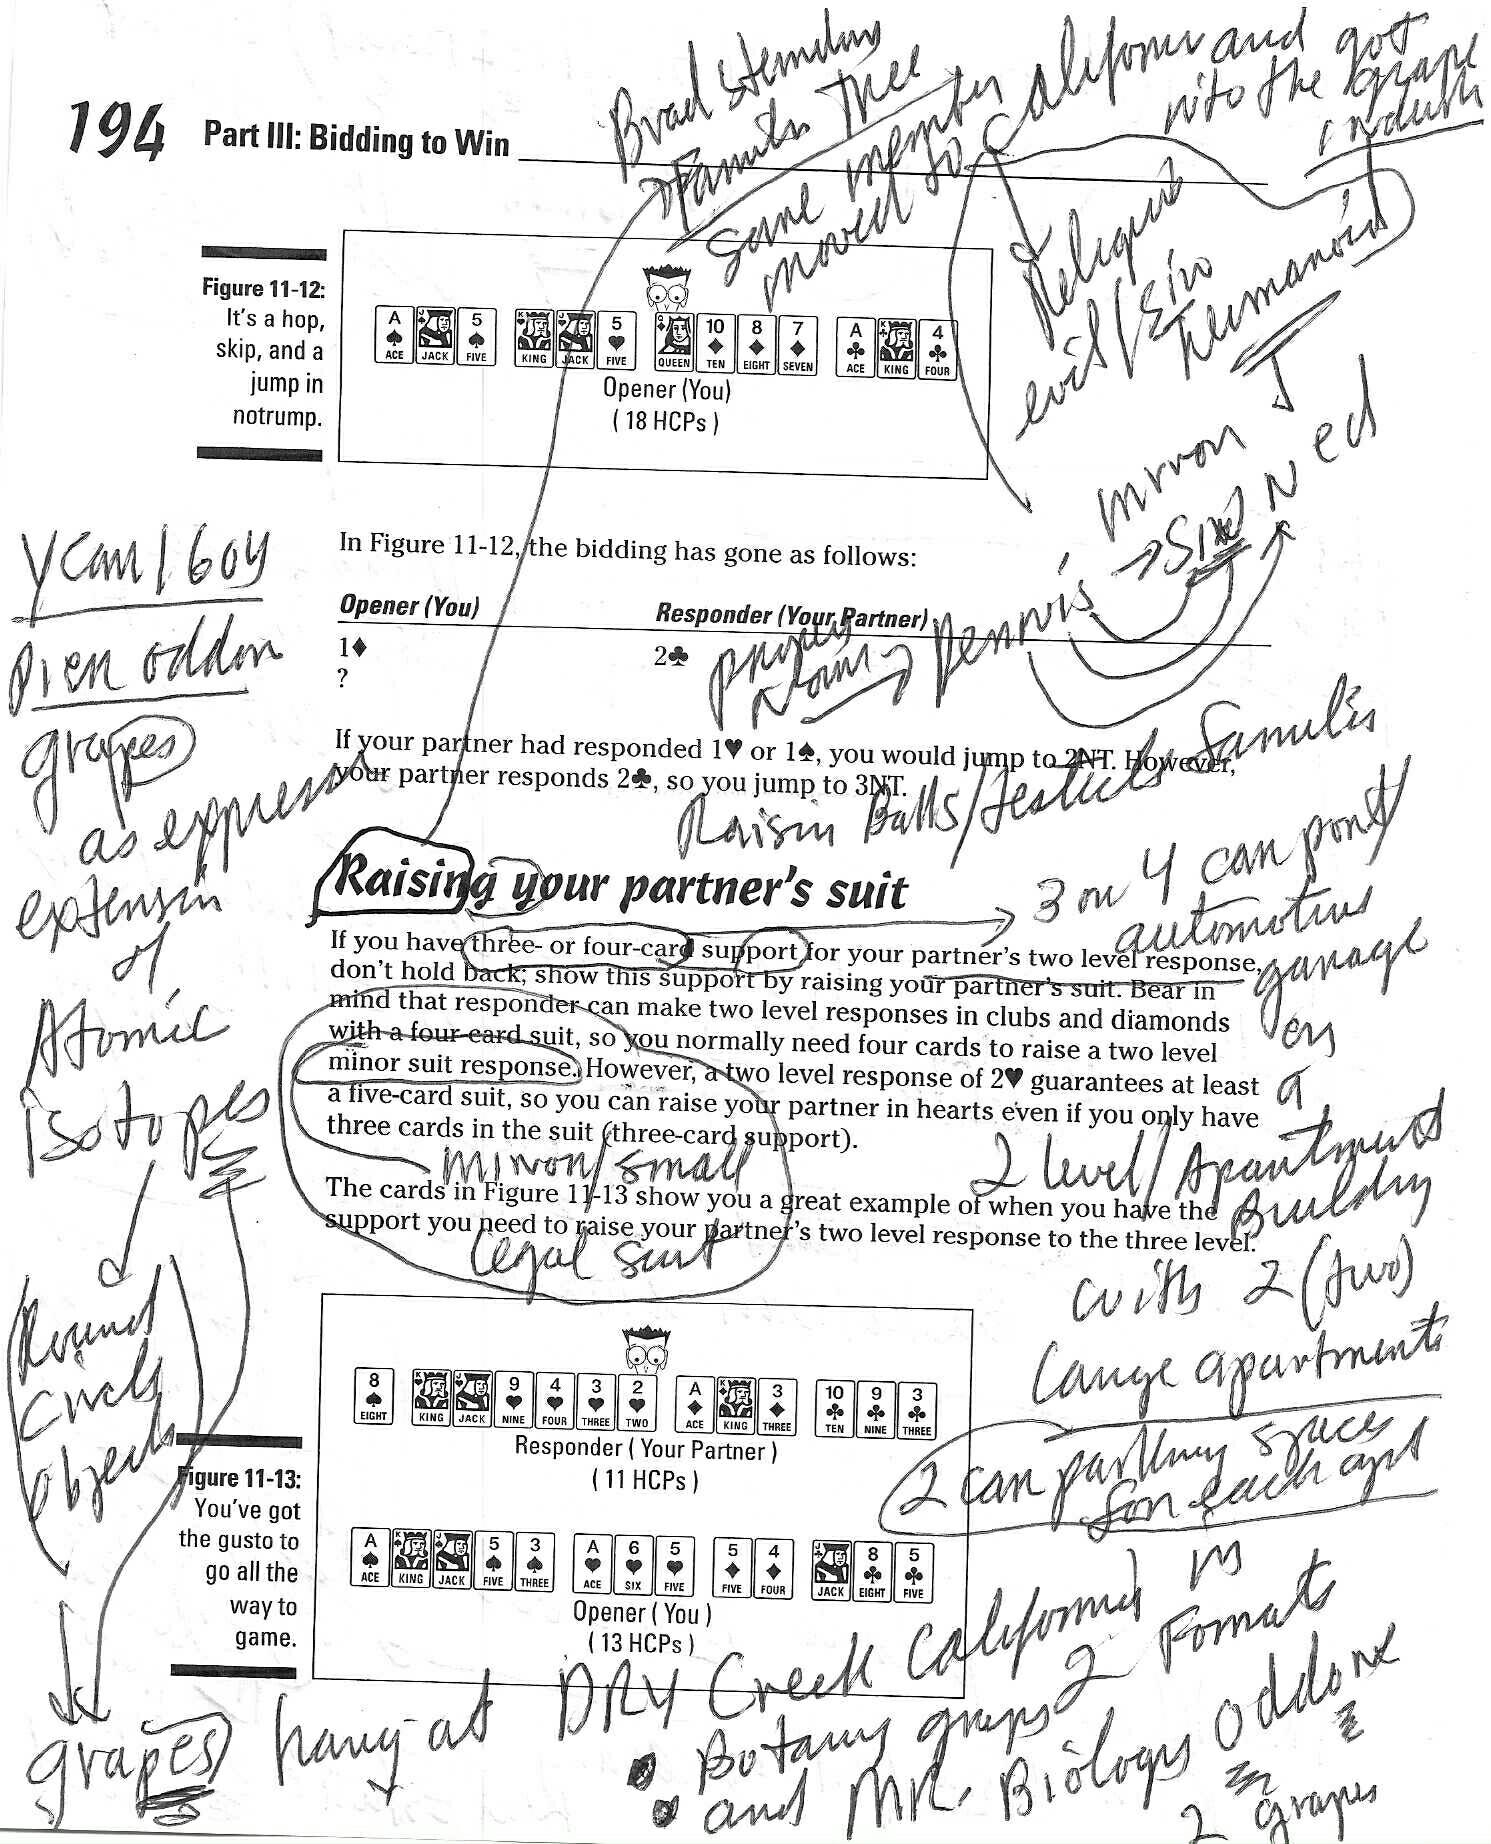 194 Part III: Bidding to Win
Family Tree
Some member
moved to California and got
into the grape
industry
evil / Sin
Figure 11-12:
It's a hop,
skip, and a
jump in
notrump.
A ACE JACK 5 FIVE KING JACK 5 FIVE QUEEN 10 TEN 8 EIGHT 7 SEVEN A ACE KING 4 FOUR
Opener (You)
( 18 HCPs )
mirror
Ned
Dennis
year 1604
grapes
as expression
extension
of
Atomic
isotopes
Round
circle
objects
grapes
In Figure 11-12, the bidding has gone as follows:
Opener (You) Responder (Your Partner)
1♦ 2♣
?
If your partner had responded 1♥ or 1♠, you would jump to 2NT. However,
your partner responds 2♣, so you jump to 3NT.
Raisin Balls/testicls Familis
Raising your partner's suit
3 or 4 car port/
automotive
garage
on
a
2 level/Apartment
Building
with 2 (two)
Large apartments
2 car parking spaces
for each apt
If you have three- or four-card support for your partner's two level response,
don't hold back; show this support by raising your partner's suit. Bear in
mind that responder can make two level responses in clubs and diamonds
with a four-card suit, so you normally need four cards to raise a two level
minor suit response. However, a two level response of 2♥ guarantees at least
a five-card suit, so you can raise your partner in hearts even if you only have
three cards in the suit (three-card support).
minor/small
The cards in Figure 11-13 show you a great example of when you have the
support you need to raise your partner's two level response to the three level.
legal suit
8 EIGHT KING JACK 9 NINE 4 FOUR 3 THREE 2 TWO A ACE KING 3 THREE 10 TEN 9 NINE 3 THREE
Responder ( Your Partner )
( 11 HCPs )
Figure 11-13:
You've got
the gusto to
go all the
way to
game.
A ACE KING JACK 5 FIVE 3 THREE A ACE 6 SIX 5 FIVE 5 FIVE 4 FOUR JACK 8 EIGHT 5 FIVE
Opener ( You )
( 13 HCPs )
hang at DRY Creek California in
2 Formats
Botany grapes
and MR. Biology Oddone
2 grapes